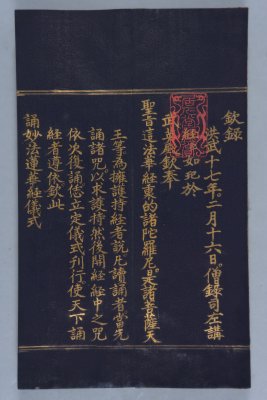 欽錄
洪武十七年。二月十六日。僧錄司左講
經如玘於
武英殿欽奉
聖旨這法華經裏的諸陀羅尼。是諸菩薩天
王等為擁護持經者說凡讀誦者當先
誦諸咒以求護持然後開經經中之咒
依次復誦您立定儀式刊行使天下誦
經者遵依欽此
誦妙法蓮華經儀式